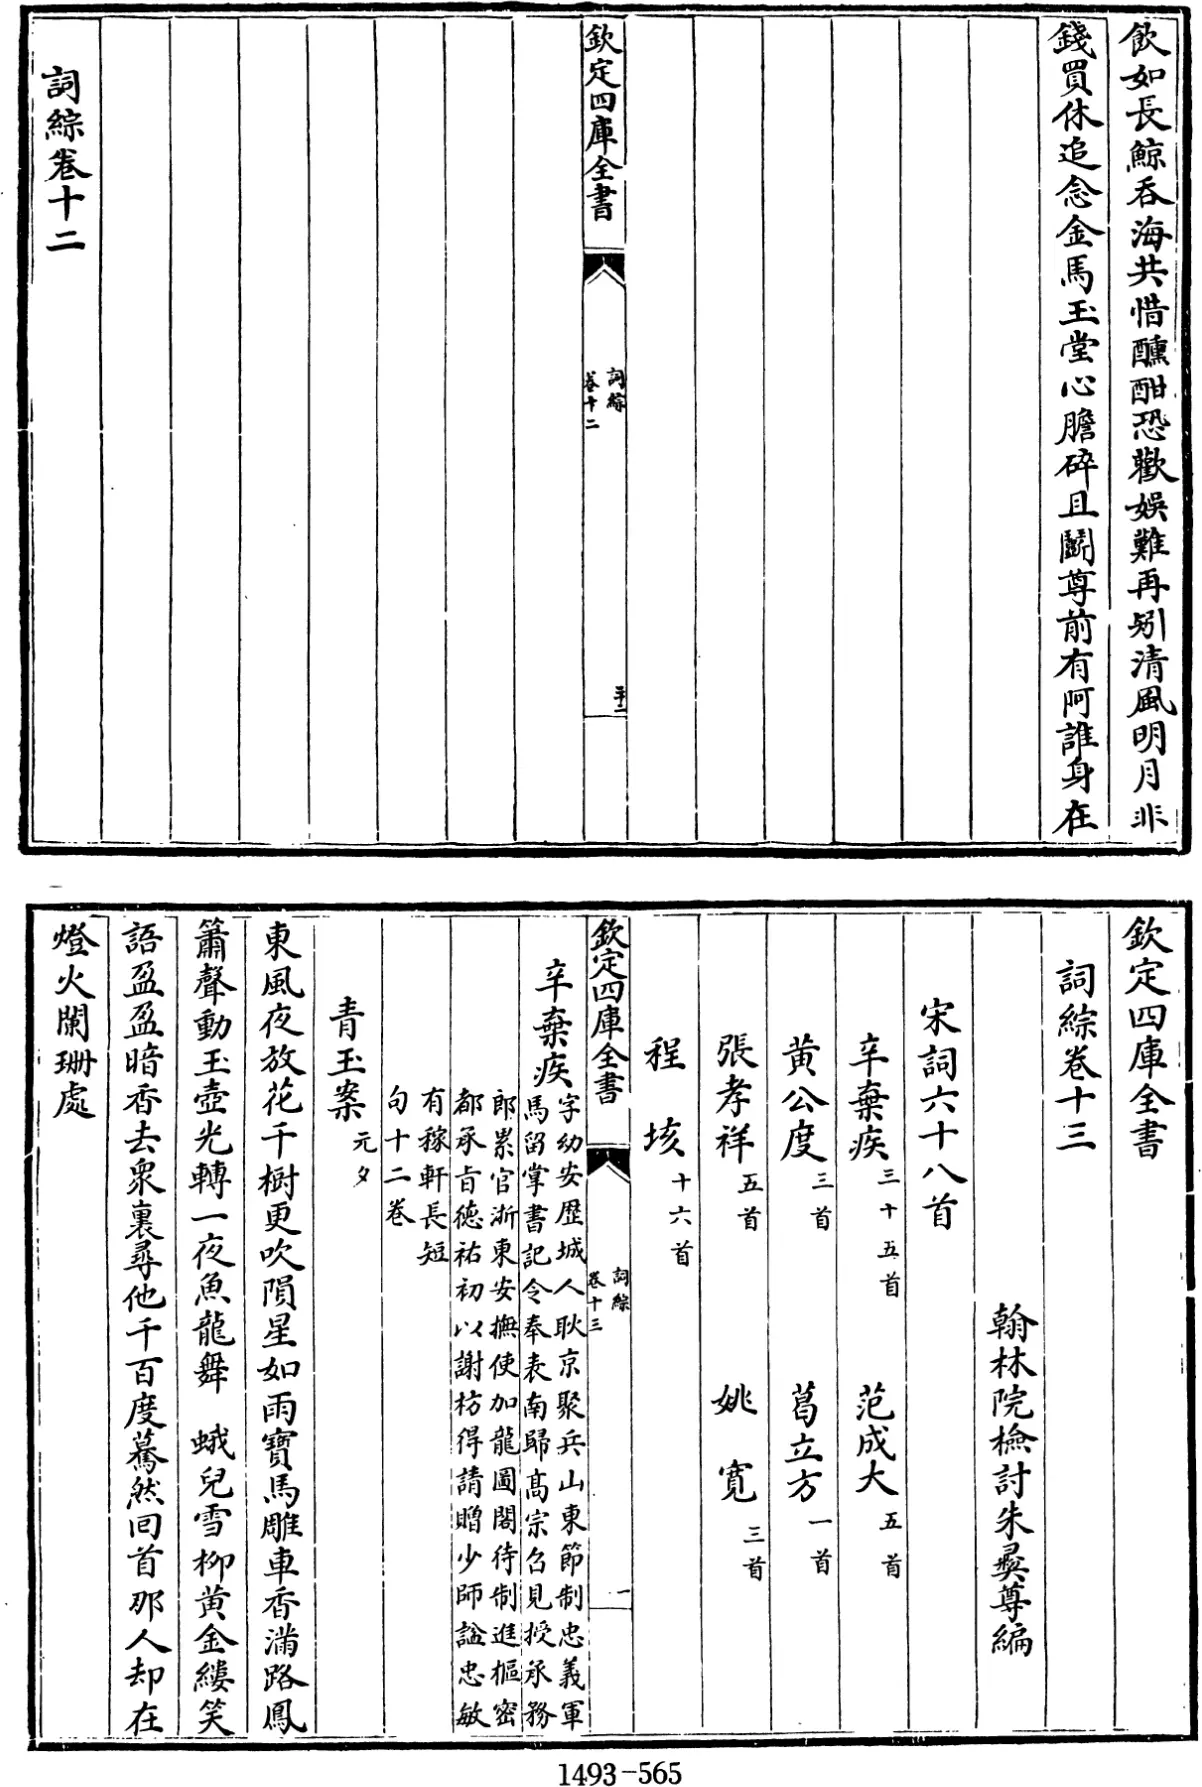 飲如長鯨吞海共惜醺酣恐歡娛難再矧清風明月非
錢買休追念金馬玉堂心膽碎且鬭尊前有阿誰身在
欽定四庫全書
詞綜
卷十二
三十二
詞綜卷十二
欽定四庫全書
詞綜卷十三
翰林院檢討朱彞尊編
宋詞六十八首
辛棄疾三十五首 范成大五首
黃公度三首 葛立方一首
張孝祥五首 姚寬三首
程垓十六首
欽定四庫全書
詞綜
卷十三
一
辛棄疾字幼安歷城人耿京聚兵山東節制忠義軍
馬留掌書記令奉表南歸高宗召見授承務
郎累官浙東安撫使加龍圖閣待制進樞密
都承旨德祐初以謝枋得請贈少師諡忠敏
有稼軒長短
句十二卷
青玉案元夕
東風夜放花千樹更吹隕星如雨寶馬雕車香滿路鳳
簫聲動玉壺光轉一夜魚龍舞 蛾兒雪柳黃金縷笑
語盈盈暗香去衆裏尋他千百度驀然回首那人却在
燈火闌珊處
1493-565